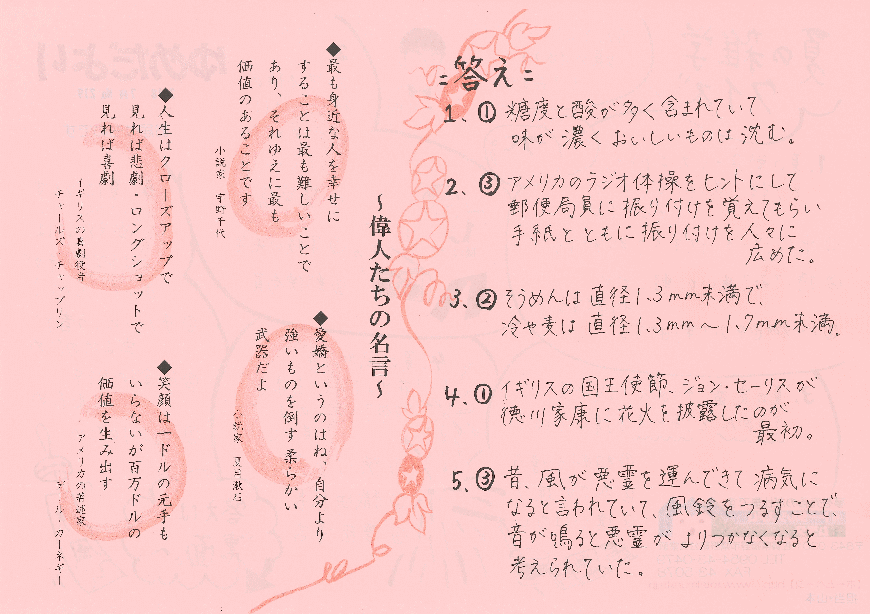 =答え=
1、① 糖度と酸が多く含まれていて
味が濃くおいしいものは沈む。
2、③ アメリカのラジオ体操をヒントにして
郵便局員に振り付けを覚えてもらい
手紙とともに振り付けを人々に
広めた。
3、② そうめんは直径1.3mm未満で、
冷や麦は直径1.3mm〜1.7mm未満。
4、① イギリスの国王使節、ジョン・セーリスが
徳川家康に花火を披露したのが
最初。
5、③ 昔、風が悪霊を運んできて病気に
なると言われていて、風鈴をつるすことで、
音が鳴ると悪霊がよりつかなくなると
考えられていた。
〜偉人たちの名言〜
◆最も身近な人を幸せに
することは最も難しいことで
あり、それゆえに最も
価値のあることです
小説家 宇野千代
◆愛嬌というのはね、自分より
強いものを倒す柔らかい
武器だよ
小説家 夏目漱石
◆人生はクローズアップで
見れば悲劇・ロングショットで
見れば喜劇
イギリスの喜劇役者
チャールズ・チャップリン
◆笑顔は一ドルの元手も
いらないが百万ドルの
価値を生み出す
アメリカの著述家
デール・カーネギー
ゆめだより